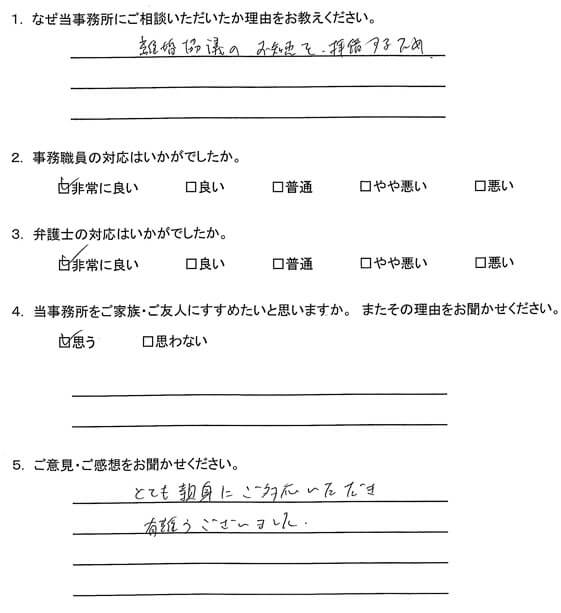 1. なぜ当事務所にご相談いただいたか理由をお教えください。
離婚協議の お知恵を、拝借するため
2. 事務職員の対応はいかがでしたか。
☑非常に良い □良い □普通 □やや悪い □悪い
3. 弁護士の対応はいかがでしたか。
☑非常に良い □良い □普通 □やや悪い □悪い
4. 当事務所をご家族・ご友人にすすめたいと思いますか。 またその理由をお聞かせください。
☑思う □思わない
5. ご意見・ご感想をお聞かせください。
とても親身にご対応いただき
有難うございました.